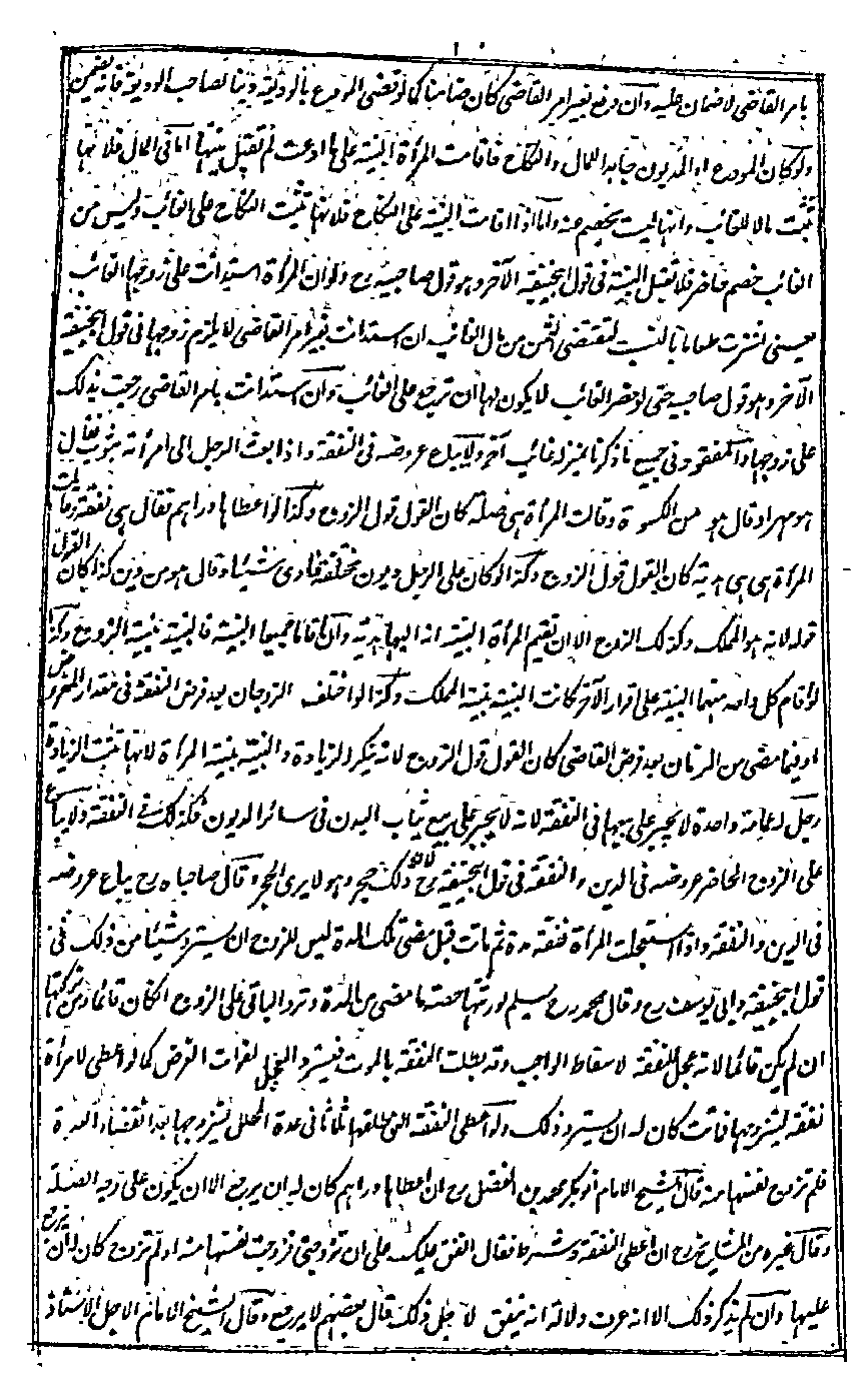 بامر القاضى لا ضمان عليه وان دفع بغير امر القاضى كان ضامنا كما لو قضى المودع بالوديعة دينا لصاحب الوديعة فانه يضمن
ولو كان المودع او المديون جاحد المال والنكاح فاقامت المرأة البينة على ما ادعت لم تقبل بينتها اما فى المال فلانها
تثبت مالا للغائب وانها ليست بخصم عنه واما اذا اقامت البينة على النكاح فلانها تثبت النكاح على الغائب وليس من
الغائب خصم حاضر فلا تقبل البينة فى قول ابيحنيفة الآخر وهو قول صاحبيه رح ولو ان المرأة استدانت على زوجها الغائب
يعنى اشترت طعاما بالنسية لتقضى الثمن من مال الغائب ان استدانت بغير امر القاضى لا يلزم زوجها فى قول ابيحنيفة
الآخر وهو قول صاحبيه حتى لو حضر الغائب لا يكون لها ان ترجع على الغائب وان استدانت بامر القاضى رجعت بذلك
على زوجها والمفقود فى جميع ما ذكرنا بمنزلة غائب آخر ولا يباع عروضه فى النفقة واذا بعث الرجل الى امرأته بثوب فقال
هو مهر او قال هو من الكسوة وقالت المرأة هى صلة كان القول قول الزوج وكذا لو اعطاها دراهم فقال هى نفقة وقالت
المرأة هى هدية كان القول قول الزوج وكذا لو كان على الرجل ديون مختلفة فادى شيئا وقال هو من دين كذا كان القول
قوله لانه هو المملك وكذلك الزوج الا ان تقيم المرأة البينة انه اليها هدية وان اقاما جميعا البينة فالبينة بينة الزوج وكذا
لو اقام كل واحد منهما البينة على اقرار الآخر كانت البينة بينة المملك وكذا لو اختلف الزوجان بعد فرض النفقة فى مقدار المفروض
او فيما مضى من الزمان بعد فرض القاضى كان القول قول الزوج لانه ينكر الزيادة والبينة بينة المرأة لانها تثبت الزيادة
رجل له عمامة واحدة لا يجبر على بيعها فى النفقة لانه لا يجبر على بيع ثياب البدن فى سائر الديون فكذلك فى النفقة ولا يباع
على الزوج الحاضر عروضه فى الدين والنفقة فى قول ابيحنيفة رح لان ذلك حجر وهو لا يرى الحجر وقال صاحباه رح يباع عروضه
فى الدين والنفقة واذا استعجلت المرأة نفقة مدة ثم ماتت قبل مضى تلك المدة ليس للزوج ان يسترد شيئا من ذلك فى
قول ابيحنيفة وابى يوسف رح وقال محمد رح يسلم لورثتها حصة ما مضى من المدة وترد الباقى على الزوج ان كان قائما ومن تركتها
ان لم يكن قائما لانه عجل النفقة لاسقاط الواجب وقد بطلت النفقة بالموت فيسترد المعجل لفوات الغرض كما لو اعطى لامرأة
نفقة ليتزوجها فماتت كان له ان يسترد ذلك ولو اعطى النفقة التى طلقها ثلاثا فى عدة المحلل ليتزوجها بعد انقضاء العدة
فلم تزوج نفسها منه قال الشيخ الامام ابو بكر محمد بن الفضل رح ان اعطاها دراهم كان له ان يرجع الا ان يكون على وجه الصلة
وقال غيره من المشايخ رح ان اعطى النفقة وشرط فقال انفق عليك على ان تزوجنى فزوجت نفسها منه او لم تزوج كان له ان يرجع
عليها وان لم يذكر ذلك الا انه عرف دلالة انه ينفق لاجل ذلك قال بعضهم لا يرجع وقال الشيخ الامام الاجل الاستاذ